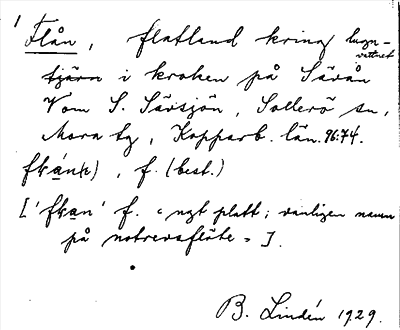 1
Flån, flatland kring lugn-
vattnet
tjärn i kroken på Sävån
Vom S. Sävsjön, Sollerö sn,
Mora tg, Kopparb. län. 96:74.
, f. (best.)
[ f. = ngt platt; vanligen namn
på notrevsflöte = ].
B. Lindén 1929.